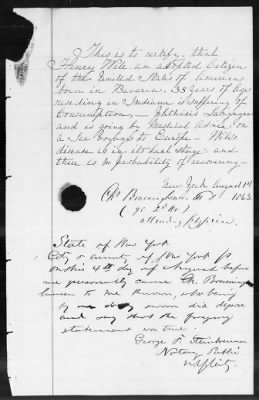 This is to certify, that
Henry Wile an adopted Citizen
of the United States of America
born in Bavaria, 35 years of Age
residing in Indiana is suffering of
Consumption, — Phthisis Laryngea
and is going by Medical Advice on
a Sea Voyage to Europe. This
disease is in its last Stage and
there is no probability of recovering —
New York August 1st
Ch M. D. 1863
attending physician.
State of New York
City & County of New York ss
On this 4th day of August before
me personally came Ch.
known to me known, who being
by me duly sworn did depose
and say that the foregoing
statement was true.
George F.
Notary Public
N.Y. City